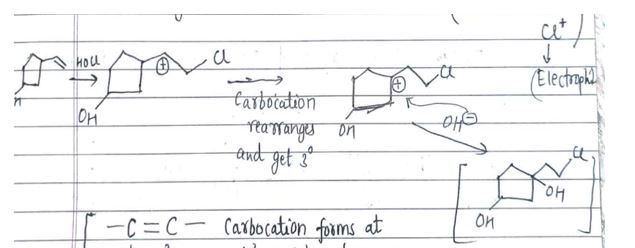 Cl⁺
HOCl
⊕
Cl
Cl
⊕
(Electroph
OH
Carbocation
rearranges
and get 3°
OH
OH⊖
Cl
OH
OH
-C=C- Carbocation forms at